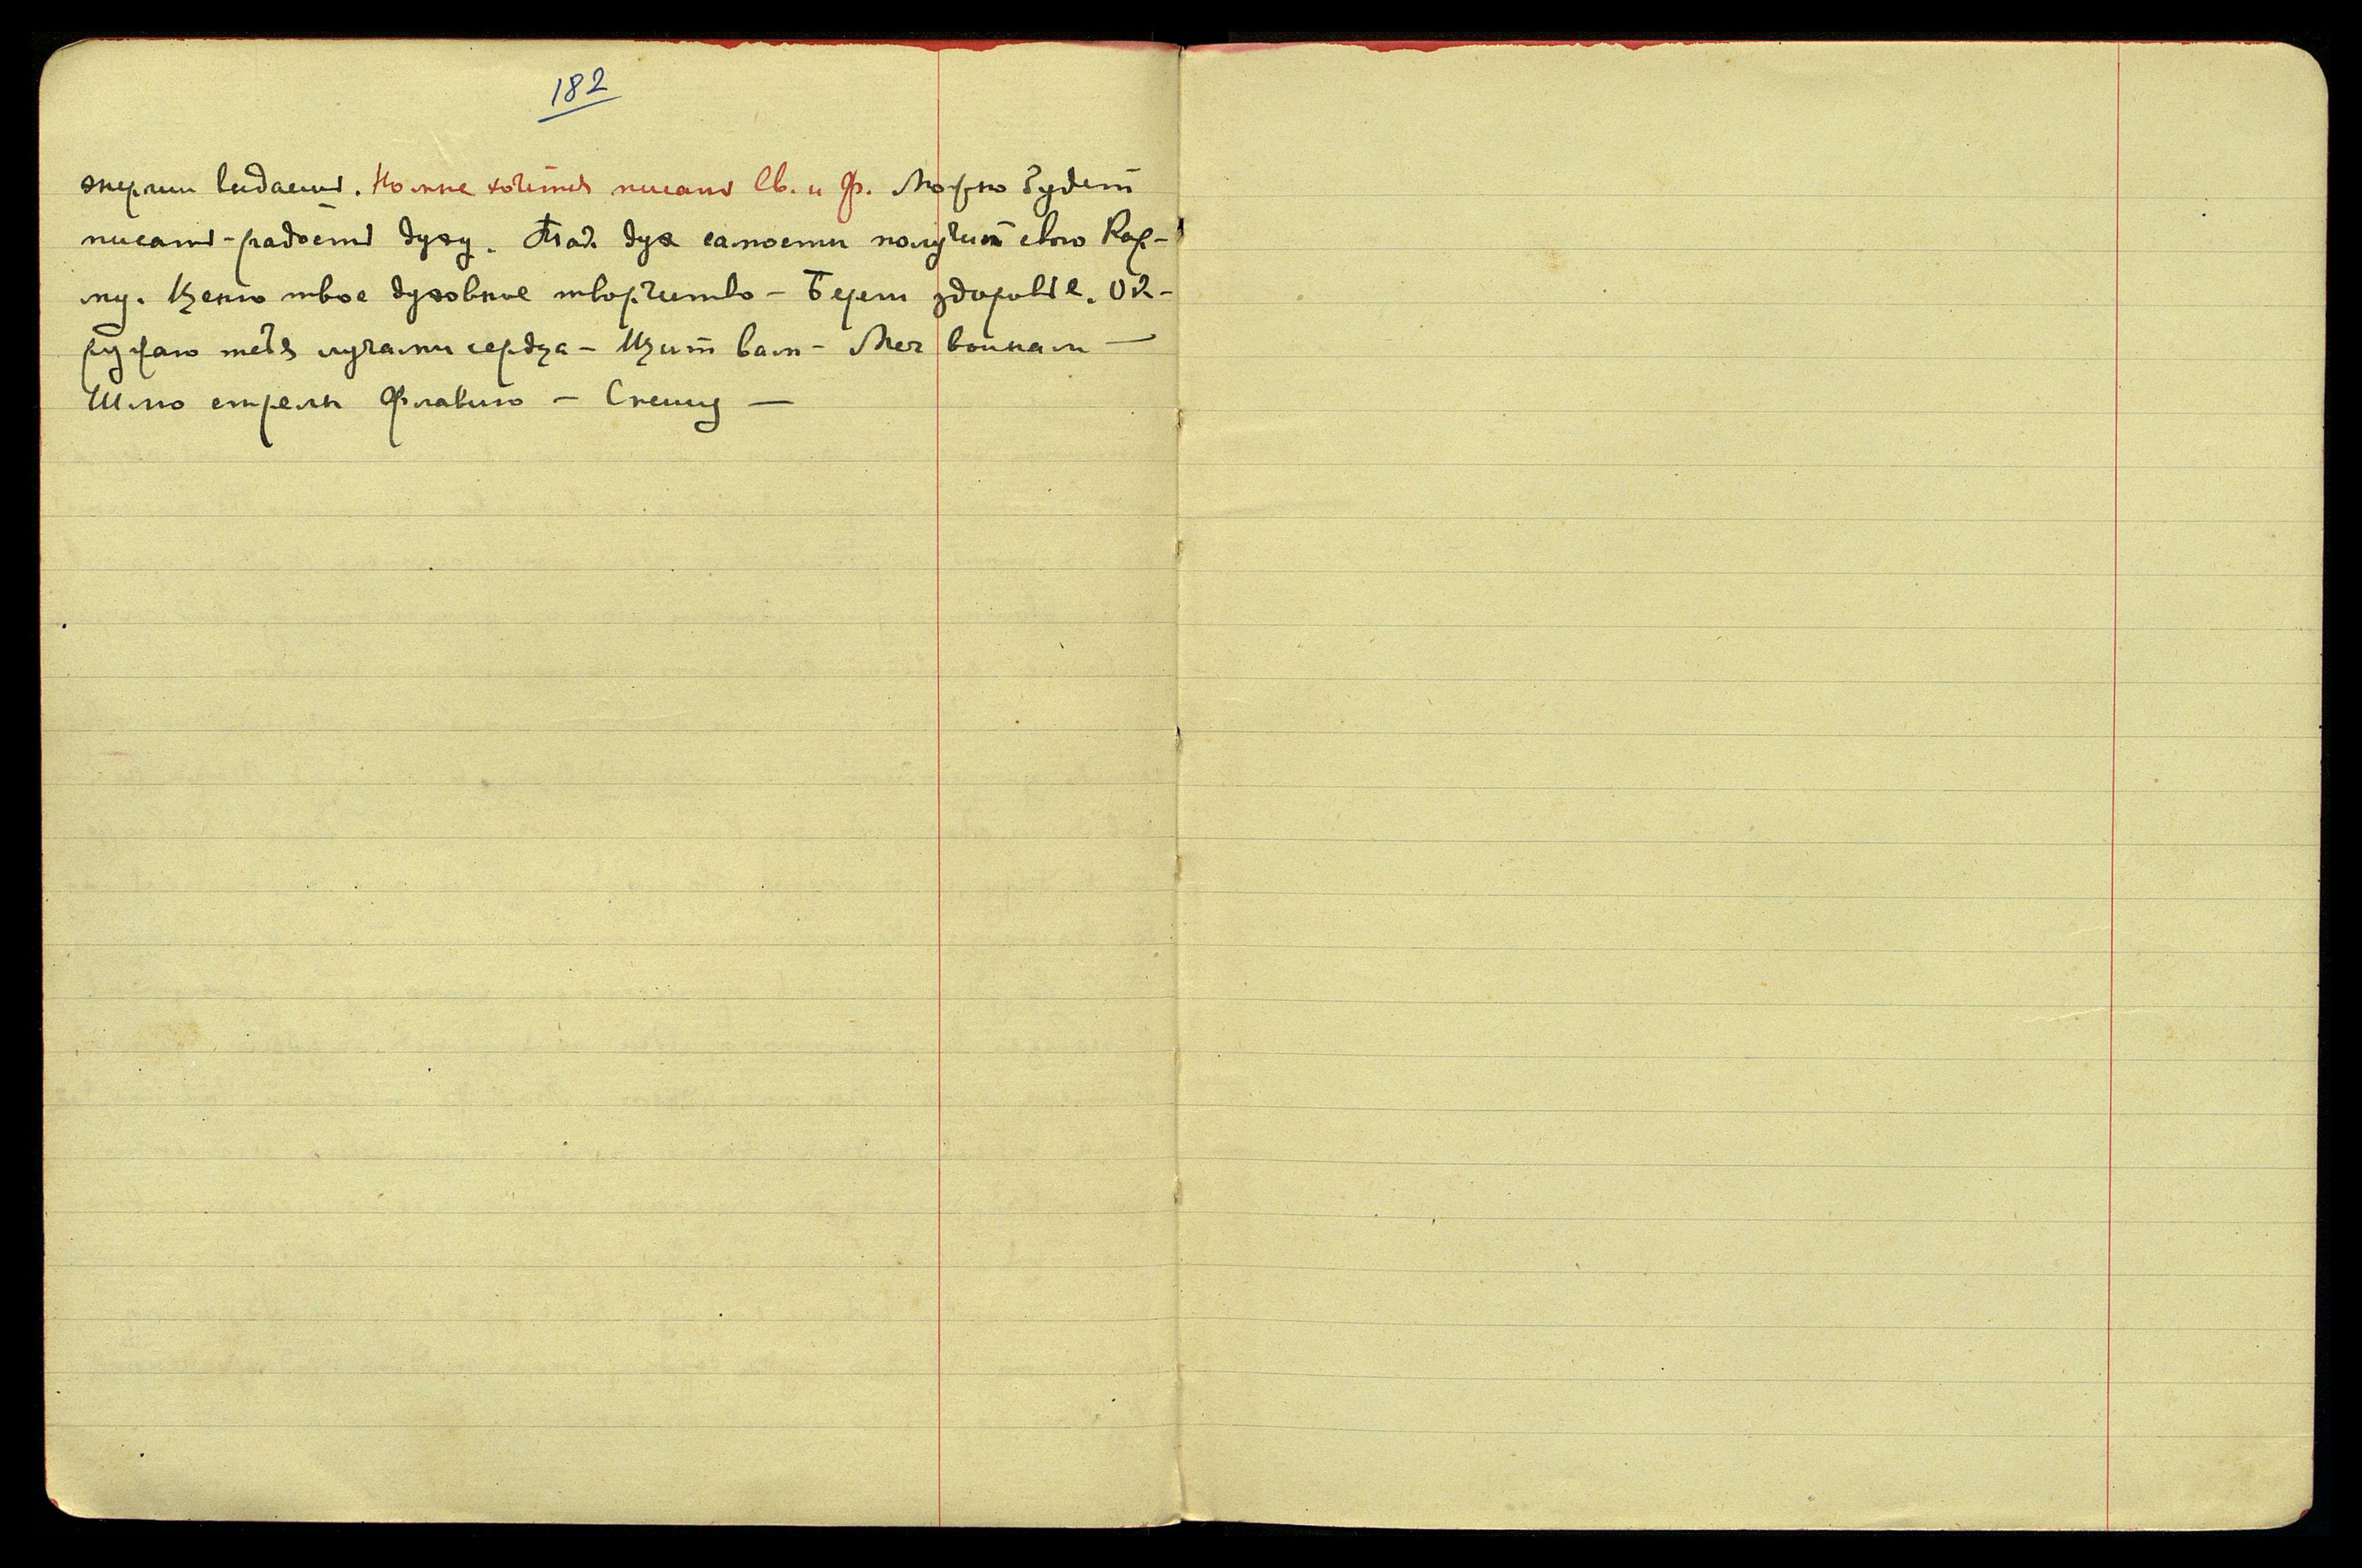 182
энергии выдаешь. Но мне хочется писать Св. и Ф. Можно будет
писать - радость духу. Так дух самости получит свою Кар-
му. Ценю твое духовное творчество - Береги здоровье. Ок-
ружаю тебя лучами сердца - Щит вам - Меч воинам —
Шлю стрелы Флавию - Спешу —